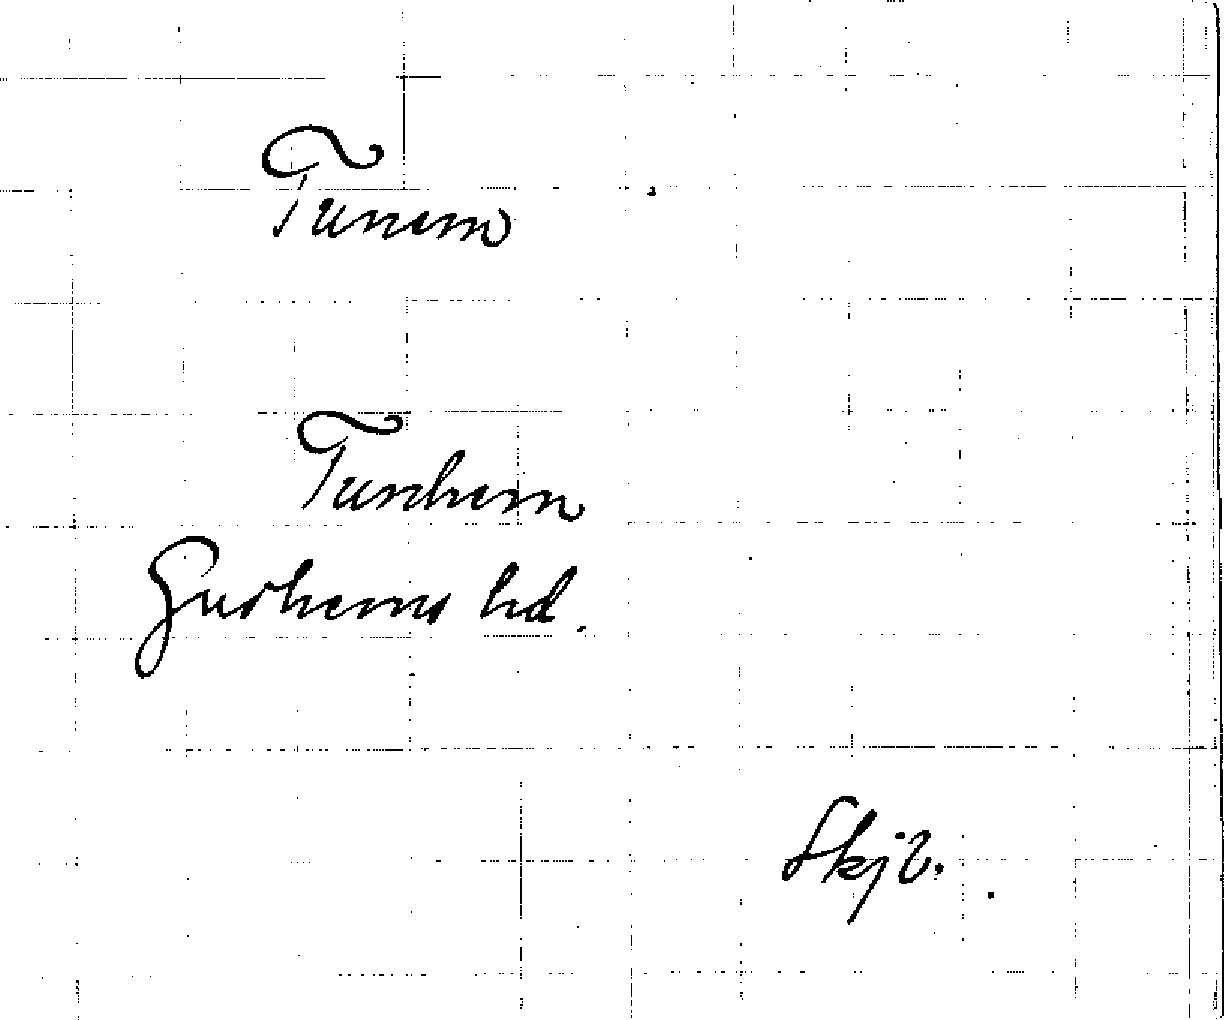 Tunem
Tunhem
Gudhems hd.
Skjb.